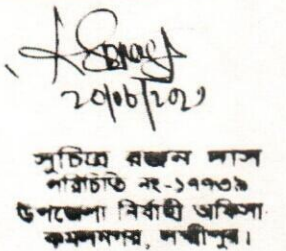 ২০/০৬/২০২১
সুচিত্র রঞ্জন দাস
পরিচিতি নং-১৭৭৩৯
উপজেলা নির্বাহী অফিসার
কমলনগর, লক্ষ্মীপুর।